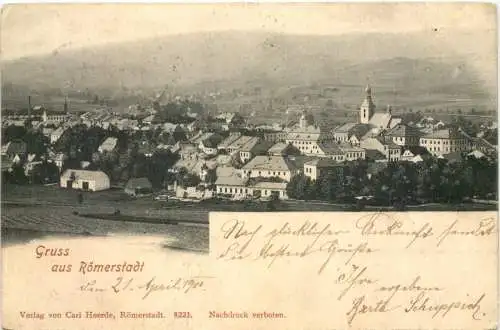 Nach glücklicher Ankunft sendet
die besten Grüße
Ihre
ergebene
Gruss
aus Römerstadt
den 21. April 190
Verlag von Carl Heerde, Römerstadt. 8221. Nachdruck verboten.